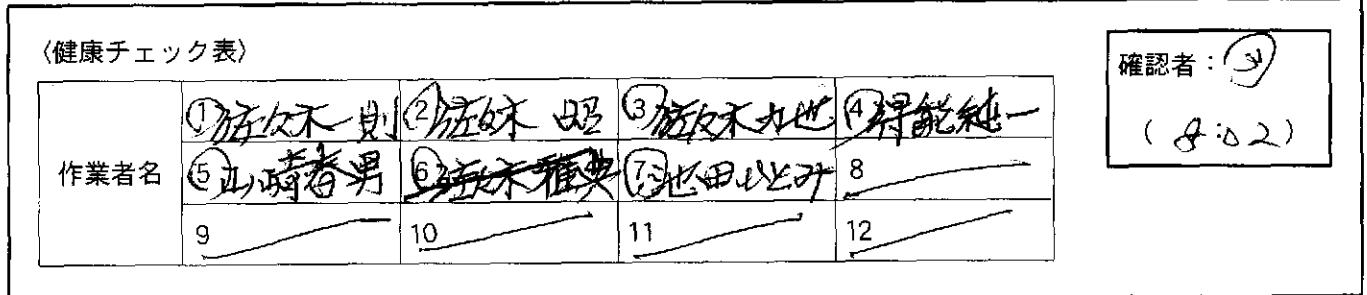 〈健康チェック表〉
確認者:
(8:02)
作業者名
①佐々木一則 ②佐々木 昭 ③佐々木丈也 ④得能純一
⑤山崎春男 ⑥佐々木雅典 ⑦池田ひとみ 8
9 10 11 12